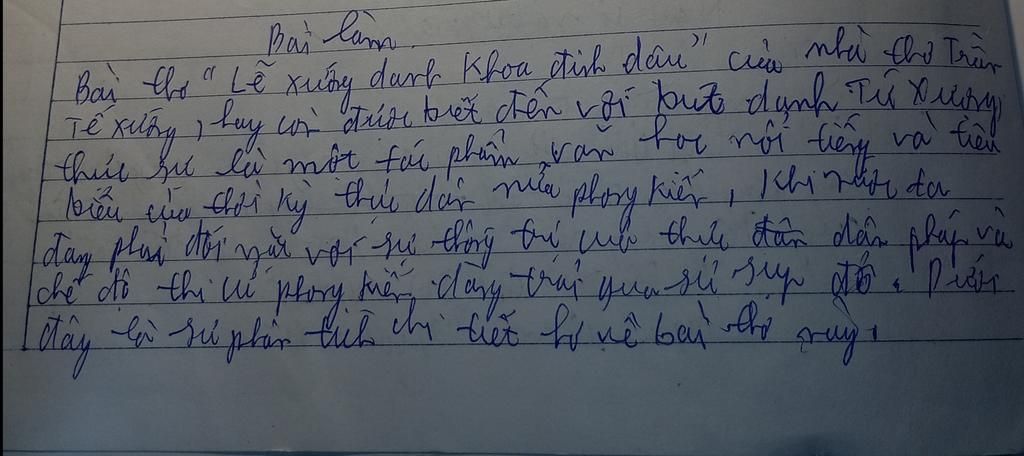 Bài làm.
Bài thơ "Lễ xướng danh khoa đinh dậu" của nhà thơ Trần
Tế xương, hay còn được biết đến với bút danh Tú Xương,
thực sự là một tác phẩm văn học nổi tiếng và tiêu
biểu của thời kỳ thực dân nửa phong kiến, khi nước ta
đang phải đối mặt với sự thống trị của thực dân pháp và
chế độ thi cử phong kiến đang trải qua sự sụp đổ. Dưới
đây là sự phân tích chi tiết hơ về bài thơ này.